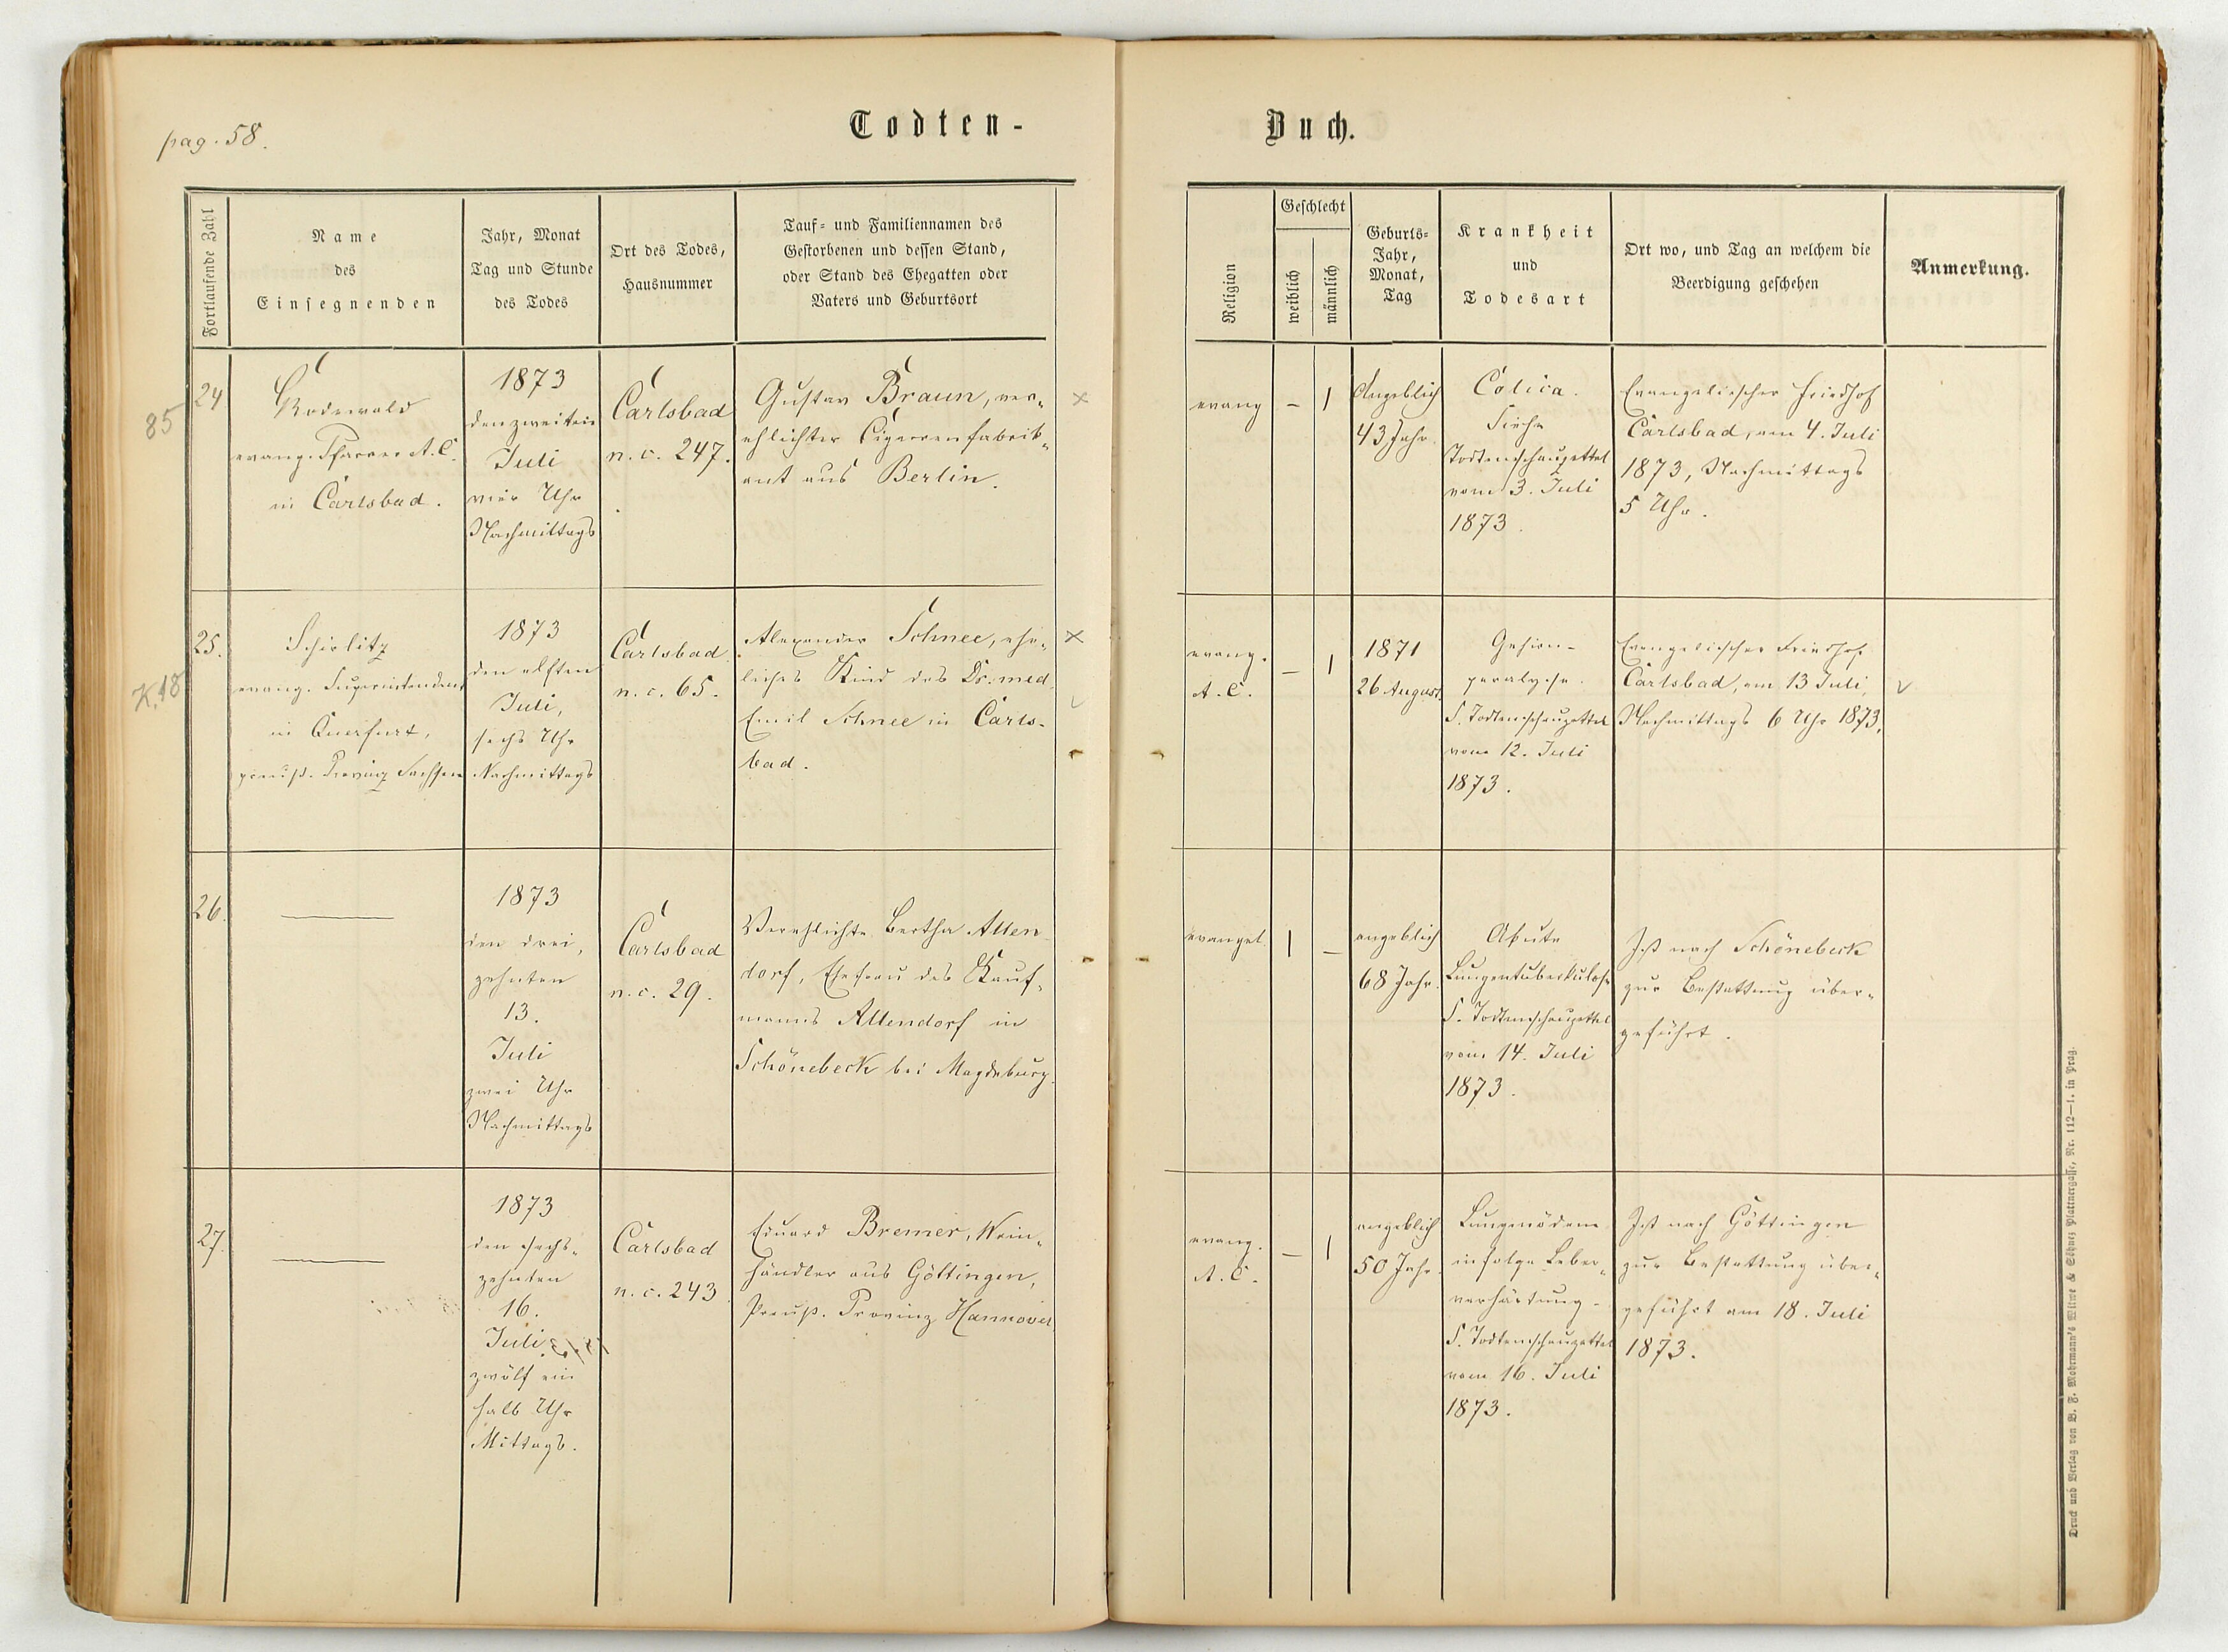 pag. 58.
Todten-
Buch.
Fortlaufende Zahl
Name
des
Einsegnenden
Jahr, Monat
Tag und Stunde
des Todes
Ort des Todes,
Hausnummer
Tauf- und Familiennamen des
Gestorbenen und dessen Stand,
oder Stand des Ehegatten oder
Vaters und Geburtsort
Religion
Geschlecht
weiblich
männlich
Geburts-
Jahr,
Monat,
Tag
Krankheit
und
Todesart
Ort wo, und Tag an welchem die
Beerdigung geschehen
Anmerkung.
85
24
Rodewald
evang. Pfarrer A. C.
in Carlsbad.
1873
den zweiten
Juli
vier Uhr
Nachmittags
Carlsbad
n. c. 247.
Gustav Braun, ver-
ehlichter Cigarrenfabrik-
ant aus Berlin.
x
evang
–
1
Angeblich
43 Jahr.
Colica.
Siehe
Todtenschauzettel
vom 3. Juli
1873.
Evangelischer Friedhof
Carlsbad, am 4. Juli
1873, Nachmittags
5 Uhr.
K. 18
25.
Schirlitz
evang. Superintendent
in Querfurt,
preuß. Provinz Sachsen
1873
den elften
Juli,
sechs Uhr
Nachmittags
Carlsbad
n. c. 65.
Alexander Schnee, ehe-
liches Kind des Dr. med.
Emil Schnee in Carls-
bad.
x
evang.
A. C.
–
1
1871
26 August.
Gehirn-
paralyse.
S. Todtenschauzettel
vom 12. Juli
1873.
Evangelischer Friedhof
Carlsbad, am 13 Juli,
Nachmittags 6 Uhr 1873.
26.
1873
den drei-
zehnten
13.
Juli
zwei Uhr
Nachmittags
Carlsbad
n. c. 29.
Verehlichte Bertha Allen-
dorf, Ehefrau des Kauf-
manns Allendorf in
Schönebeck bei Magdeburg.
evangel.
1
–
angeblich
68 Jahr.
Akute
Lungentuberkulose
S. Todtenschauzettel
vom 14. Juli
1873.
Ist nach Schönebeck
zur Bestattung über-
geführt.
27.
1873
den sechs-
zehnten
16.
Juli
zwölf ein
halb Uhr
Mittags.
Carlsbad
n. c. 243
Eduard Bremer, Wein-
händler aus Göttingen,
Preuß. Provinz Hannover.
evang.
A. C.
–
1
angeblich
50 Jahr.
Lungenödem
infolge Leber-
verhärtung.
S. Todtenschauzettel
vom 16. Juli
1873.
Ist nach Göttingen
zur Bestattung über-
geführt am 18. Juli
1873.
Druck und Verlag von B. F. Mohrmann's Witwe & Söhne, Plattnergasse, Nr. 112—1. in Prag.